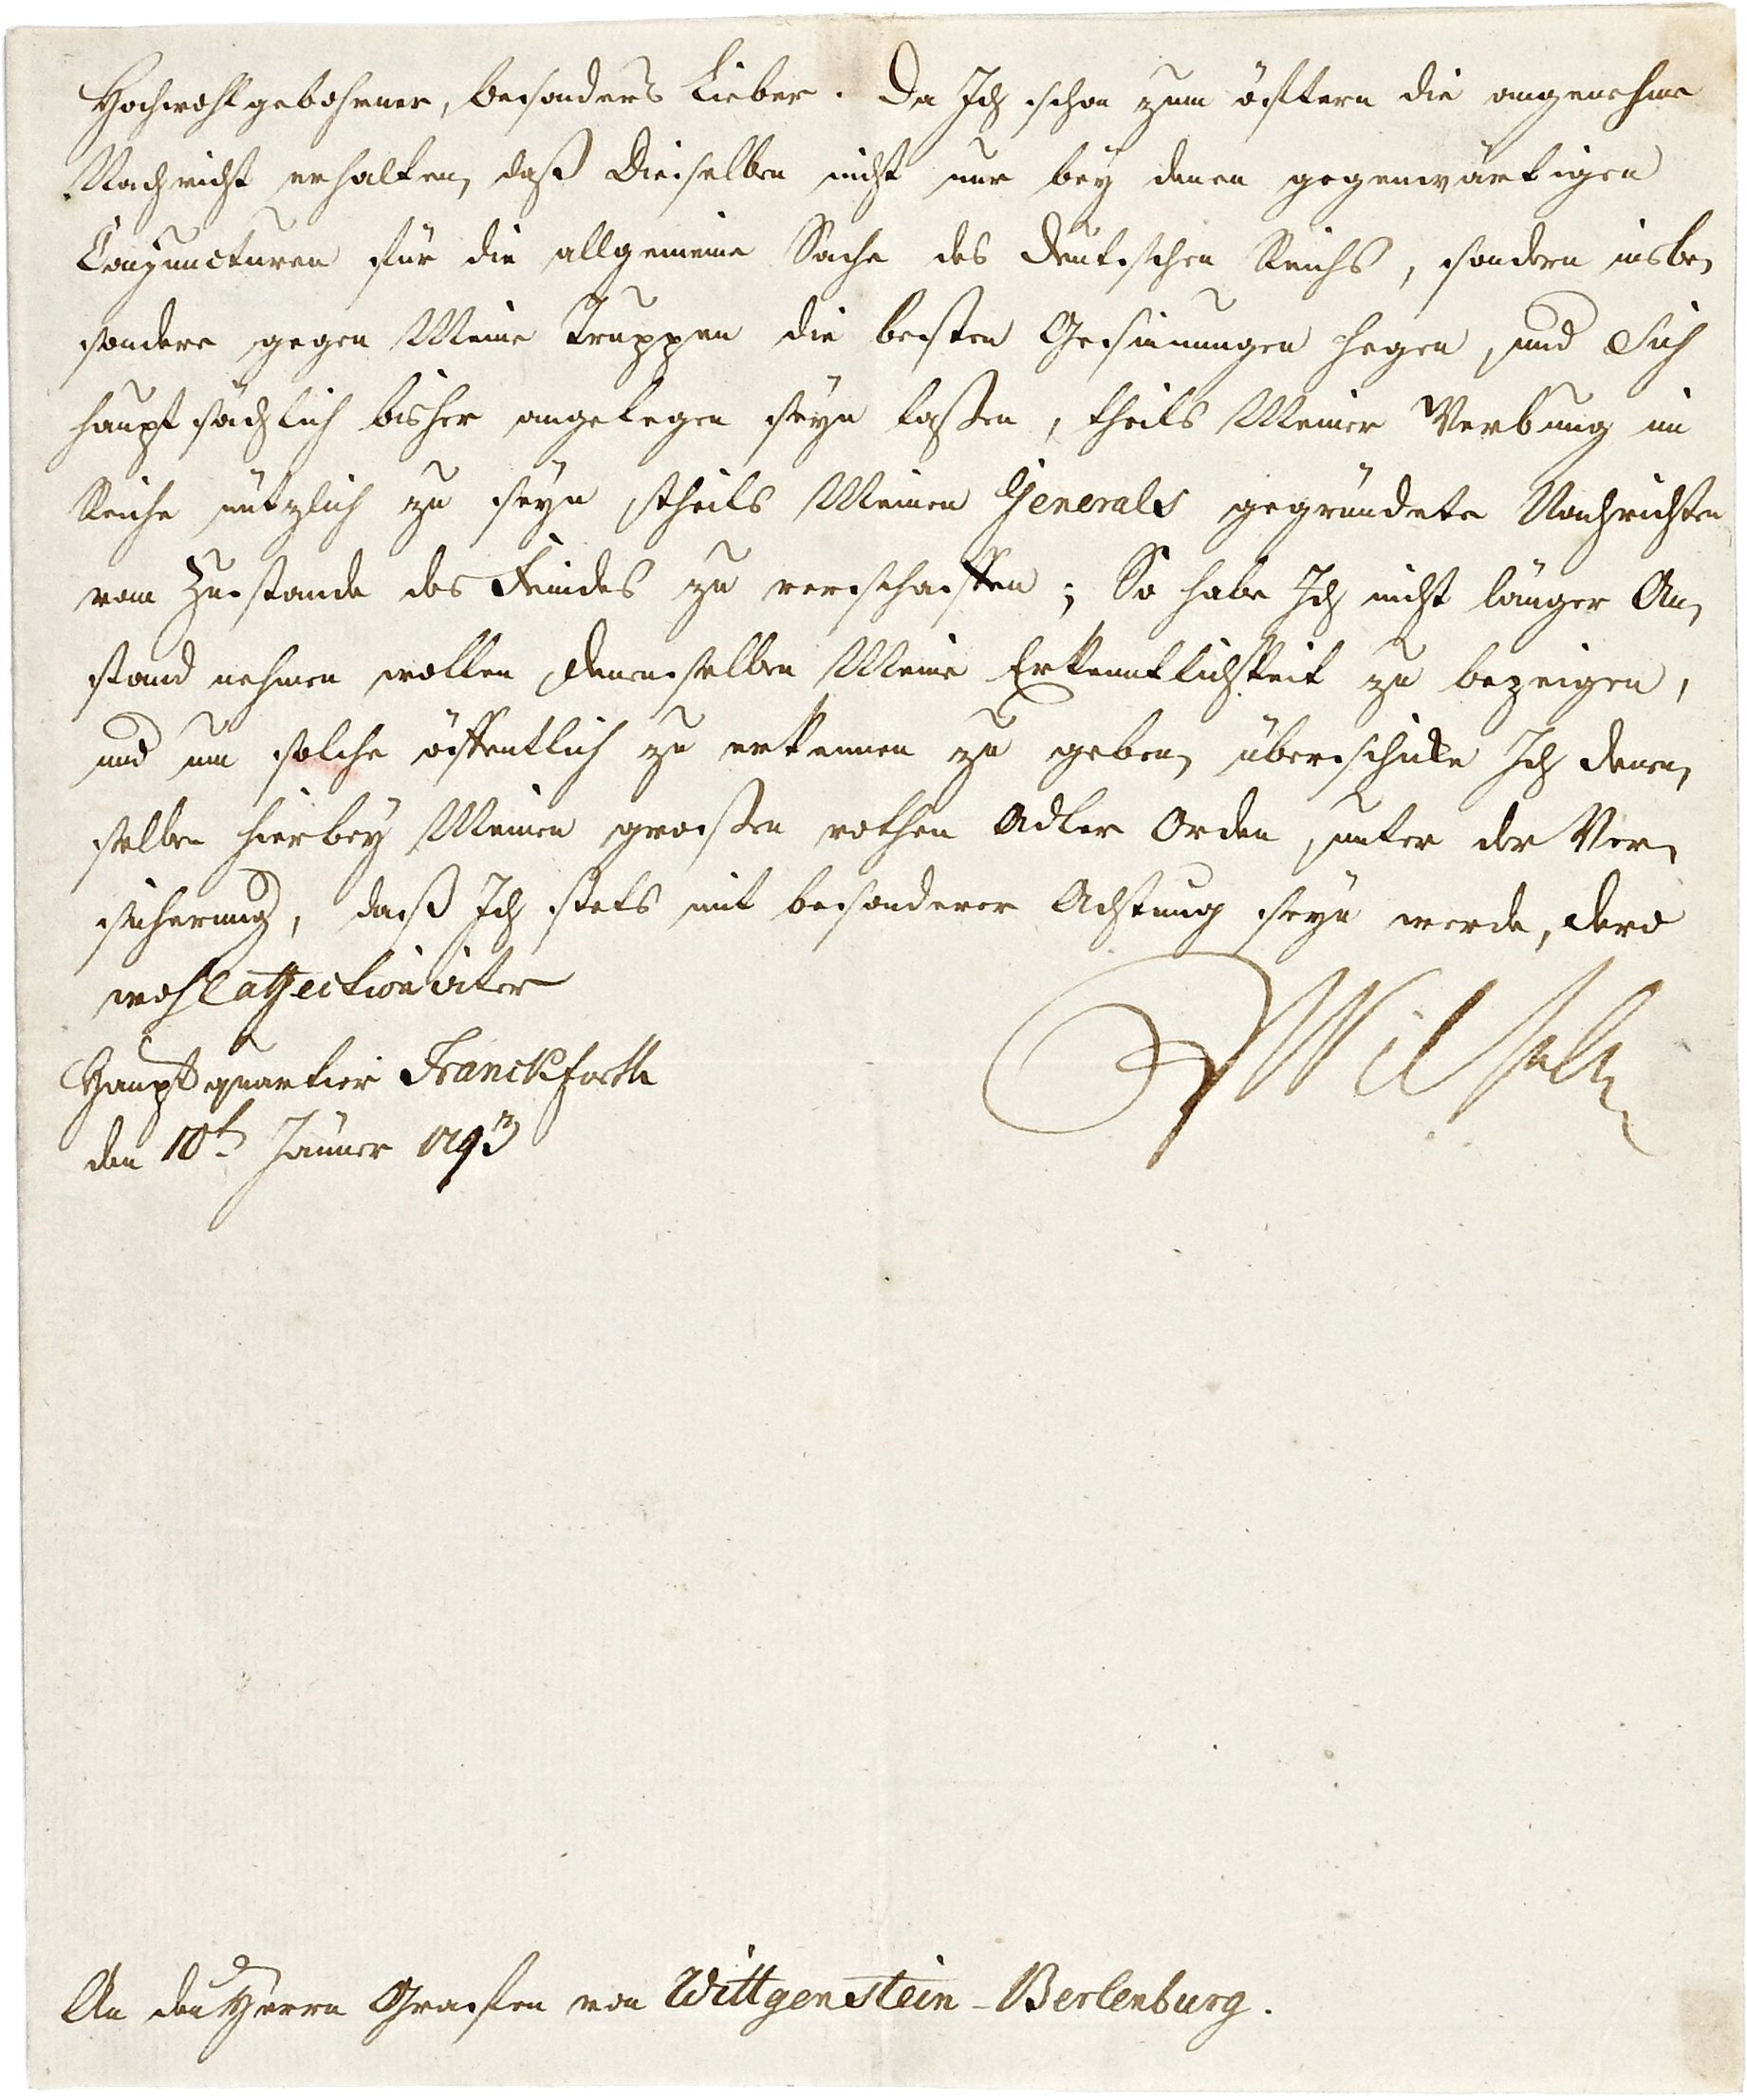 Hochwohlgebohrner, besonders Lieber. Da Ich schon zum öftern die angenehme
Nachricht erhalten, daß Dieselben nicht nur bey denen gegenwärtigen
Conjuncturen für die allgemeine Sache des deutschen Reichs, sondern insbe,
sondere gegen Meine Truppen die besten Gesinnungen hegen, und Sich
hauptsächlich bisher angelegen seyn laßen, theils Meiner Werbung im
Reiche nützlich zu seyn, theils Meinen Generals gegründete Nachrichten
vom Zustande des Feindes zu verschaffen; So habe Ich nicht länger An,
stand nehmen wollen, denenselben Meine Erkenntlichkeit zu bezeigen,
und um solche öffentlich zu erkennen zu geben, überschicke Ich denen,
selben hierbey Meinen großen rothen Adler Orden, unter der Ver,
sicherung, daß Ich stets mit besonderer Achtung seyn werde, dero
wohl affectionirter
Hauptquartier Franckforth
den 10t Jänner 1793
FWilhelm
An den Herrn Grafen von Wittgenstein-Berlenburg.